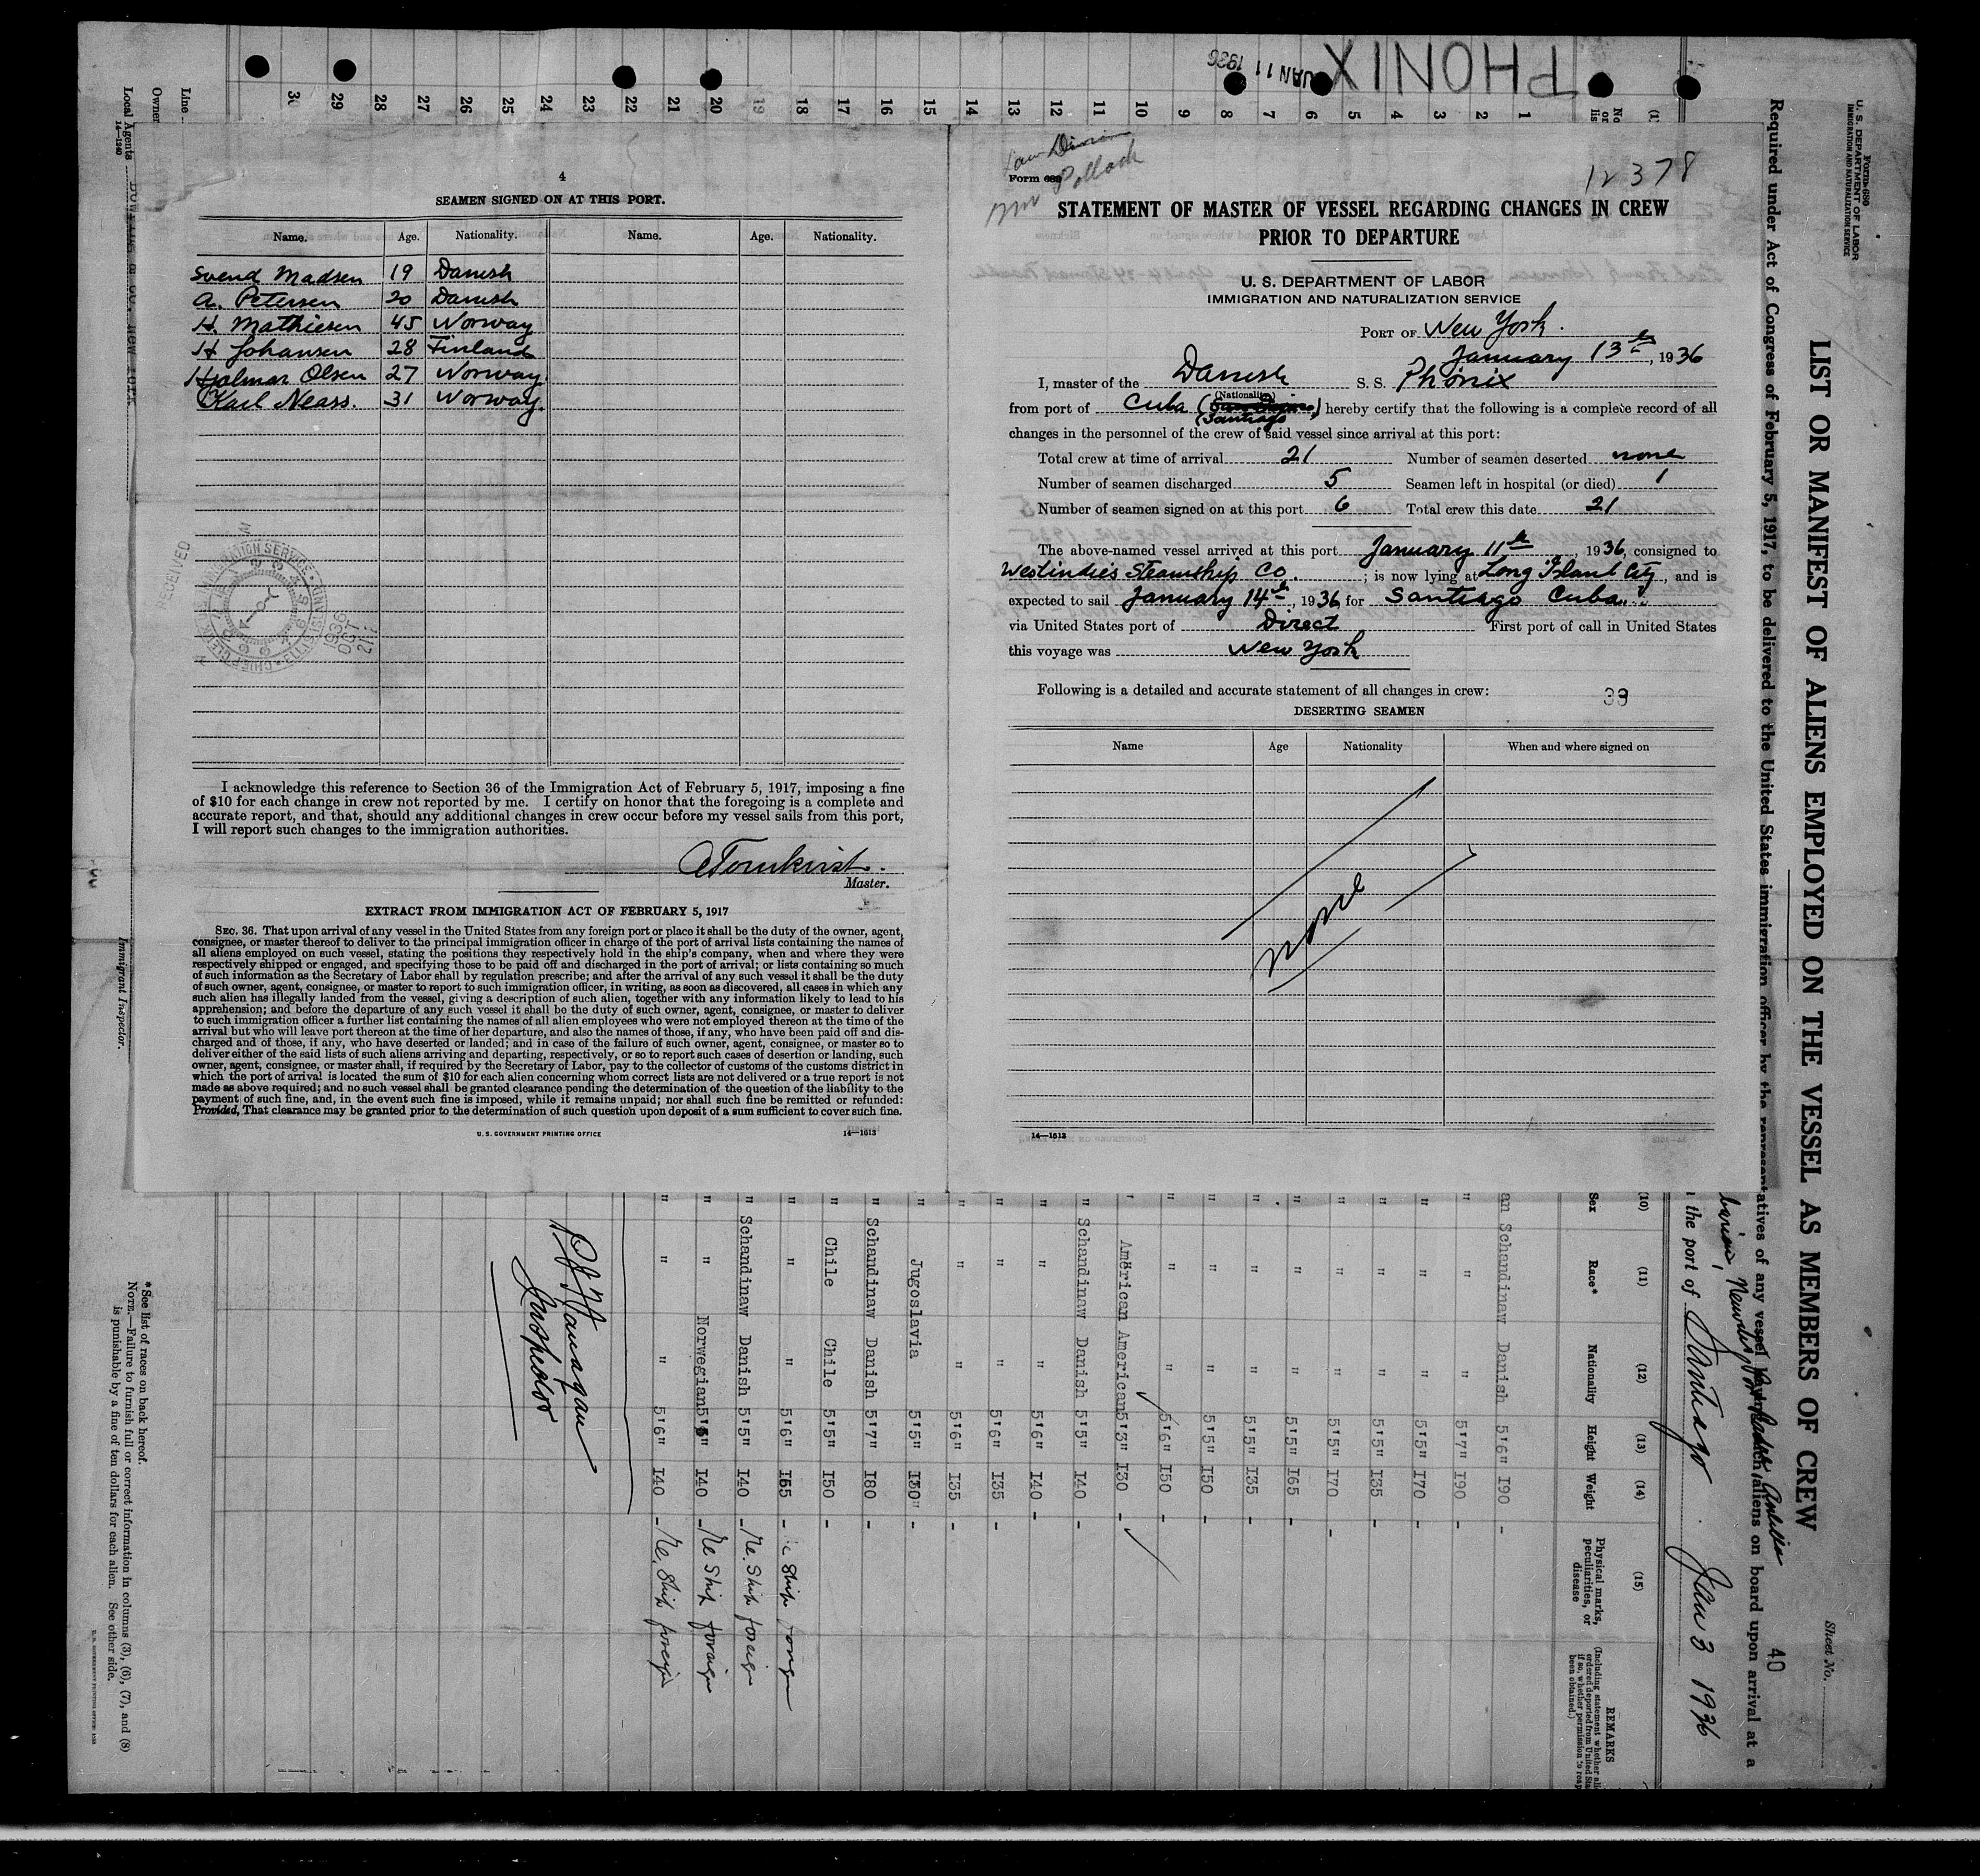 PHONIX
JAN 11 1936
30 29 28 27 26 25 24 23 22 21 20 19 18 17 16 15 14 13 12 11 10 9 8 7 6 5 4 3 2 1
Line
Owner
Local Agents
14-1240
Immigrant Inspector.
4
SEAMEN SIGNED ON AT THIS PORT.
Name. Age. Nationality. Name. Age. Nationality.
Svend Madsen 19 Danish
A. Petersen 20 Danish
H. Mathiesen 45 Norway
H Johansen 28 Finland
Hjalmar Olsen 27 Norway
Karl Neass. 31 Norway.
RECEIVED
I acknowledge this reference to Section 36 of the Immigration Act of February 5, 1917, imposing a fine
of $10 for each change in crew not reported by me. I certify on honor that the foregoing is a complete and
accurate report, and that, should any additional changes in crew occur before my vessel sails from this port,
I will report such changes to the immigration authorities.
Master.
EXTRACT FROM IMMIGRATION ACT OF FEBRUARY 5, 1917
SEC. 36. That upon arrival of any vessel in the United States from any foreign port or place it shall be the duty of the owner, agent,
consignee, or master thereof to deliver to the principal immigration officer in charge of the port of arrival lists containing the names of
all aliens employed on such vessel, stating the positions they respectively hold in the ship's company, when and where they were
respectively shipped or engaged, and specifying those to be paid off and discharged in the port of arrival; or lists containing so much
of such information as the Secretary of Labor shall by regulation prescribe; and after the arrival of any such vessel it shall be the duty
of such owner, agent, consignee, or master to report to such immigration officer, in writing, as soon as discovered, all cases in which any
such alien has illegally landed from the vessel, giving a description of such alien, together with any information likely to lead to his
apprehension; and before the departure of any such vessel it shall be the duty of such owner, agent, consignee, or master to deliver
to such immigration officer a further list containing the names of all alien employees who were not employed thereon at the time of the
arrival but who will leave port thereon at the time of her departure, and also the names of those, if any, who have been paid off and dis-
charged and of those, if any, who have deserted or landed; and in case of the failure of such owner, agent, consignee, or master so to
deliver either of the said lists of such aliens arriving and departing, respectively, or so to report such cases of desertion or landing, such
owner, agent, consignee, or master shall, if required by the Secretary of Labor, pay to the collector of customs of the customs district in
which the port of arrival is located the sum of $10 for each alien concerning whom correct lists are not delivered or a true report is not
made as above required; and no such vessel shall be granted clearance pending the determination of the question of the liability to the
payment of such fine, and, in the event such fine is imposed, while it remains unpaid; nor shall such fine be remitted or refunded:
Provided, That clearance may be granted prior to the determination of such question upon deposit of a sum sufficient to cover such fine.
U. S. GOVERNMENT PRINTING OFFICE 14—1613
Law Division
Form 689 Pollack
12378
STATEMENT OF MASTER OF VESSEL REGARDING CHANGES IN CREW
PRIOR TO DEPARTURE
U. S. DEPARTMENT OF LABOR
IMMIGRATION AND NATURALIZATION SERVICE
PORT OF New York.
January 13th, 1936
I, master of the Danish S. S. Phönix
(Nationality)
from port of Cuba (Santiago) hereby certify that the following is a complete record of all
changes in the personnel of the crew of said vessel since arrival at this port:
Total crew at time of arrival 21 Number of seamen deserted none
Number of seamen discharged 5 Seamen left in hospital (or died) 1
Number of seamen signed on at this port 6 Total crew this date 21
The above-named vessel arrived at this port January 11th, 1936, consigned to
Westindies Steamship Co.; is now lying at Long Island City, and is
expected to sail January 14th, 1936, for Santiago Cuba
via United States port of Direct First port of call in United States
this voyage was New York
Following is a detailed and accurate statement of all changes in crew: 39
DESERTING SEAMEN
Name Age Nationality When and where signed on
none
14—1613
Form 680
U. S. DEPARTMENT OF LABOR
IMMIGRATION AND NATURALIZATION SERVICE
Sheet No.
LIST OR MANIFEST OF ALIENS EMPLOYED ON THE VESSEL AS MEMBERS OF CREW
40
Required under Act of Congress of February 5, 1917, to be delivered to the United States immigration officer by the representatives of any vessel having such aliens on board upon arrival at a
the port of Santiago. Jan 3 1936
(10) (11) (12) (13) (14) (15)
Sex Race* Nationality Height Weight Physical marks, peculiarities, or disease
REMARKS
an Schandinaw Danish 5'6" I90 -
" " " 5'7" I90
" " " 5'5" I70 -
" " " 5'5" I35 -
" " " 5'5" I70 -
" " " 5'5" I65 -
" " " 5'5" I35 -
" " " 5'5" I50 -
" " " 5'6" I50 -
" American American 5'3" I30 -
" Schandinaw Danish 5'5" I40 -
" " " 5'6" I40 -
" " " 5'6" I35 -
" " " 5'6" I35 -
" Jugoslavia 5'5" I30" -
" Schandinaw Danish 5'7" I80 -
" Chile Chile 5'5" I50 -
" " " 5'6" I65 - Ship foreign
" Schandinaw Danish 5'5" I40 - Re. Ship foreign
" " Norwegian 5'5" I40 - Re Ship foreign
" " " 5'6" I40 - Re. Ship foreign
Inspector
* See list of races on back hereof.
NOTE.—Failure to furnish full or correct information in columns (3), (6), (7), and (8)
is punishable by a fine of ten dollars for each alien. See other side.